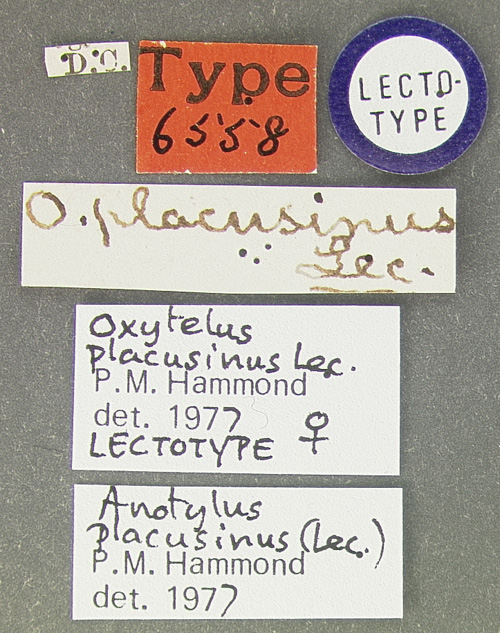 D.C.
Type
6558
LECTO-
TYPE
O. placusinus
Lec.
Oxytelus
placusinus Lec.
P.M. Hammond
det. 1977 ♀
LECTOTYPE
Anotylus
placusinus (Lec.)
P.M. Hammond
det. 1977